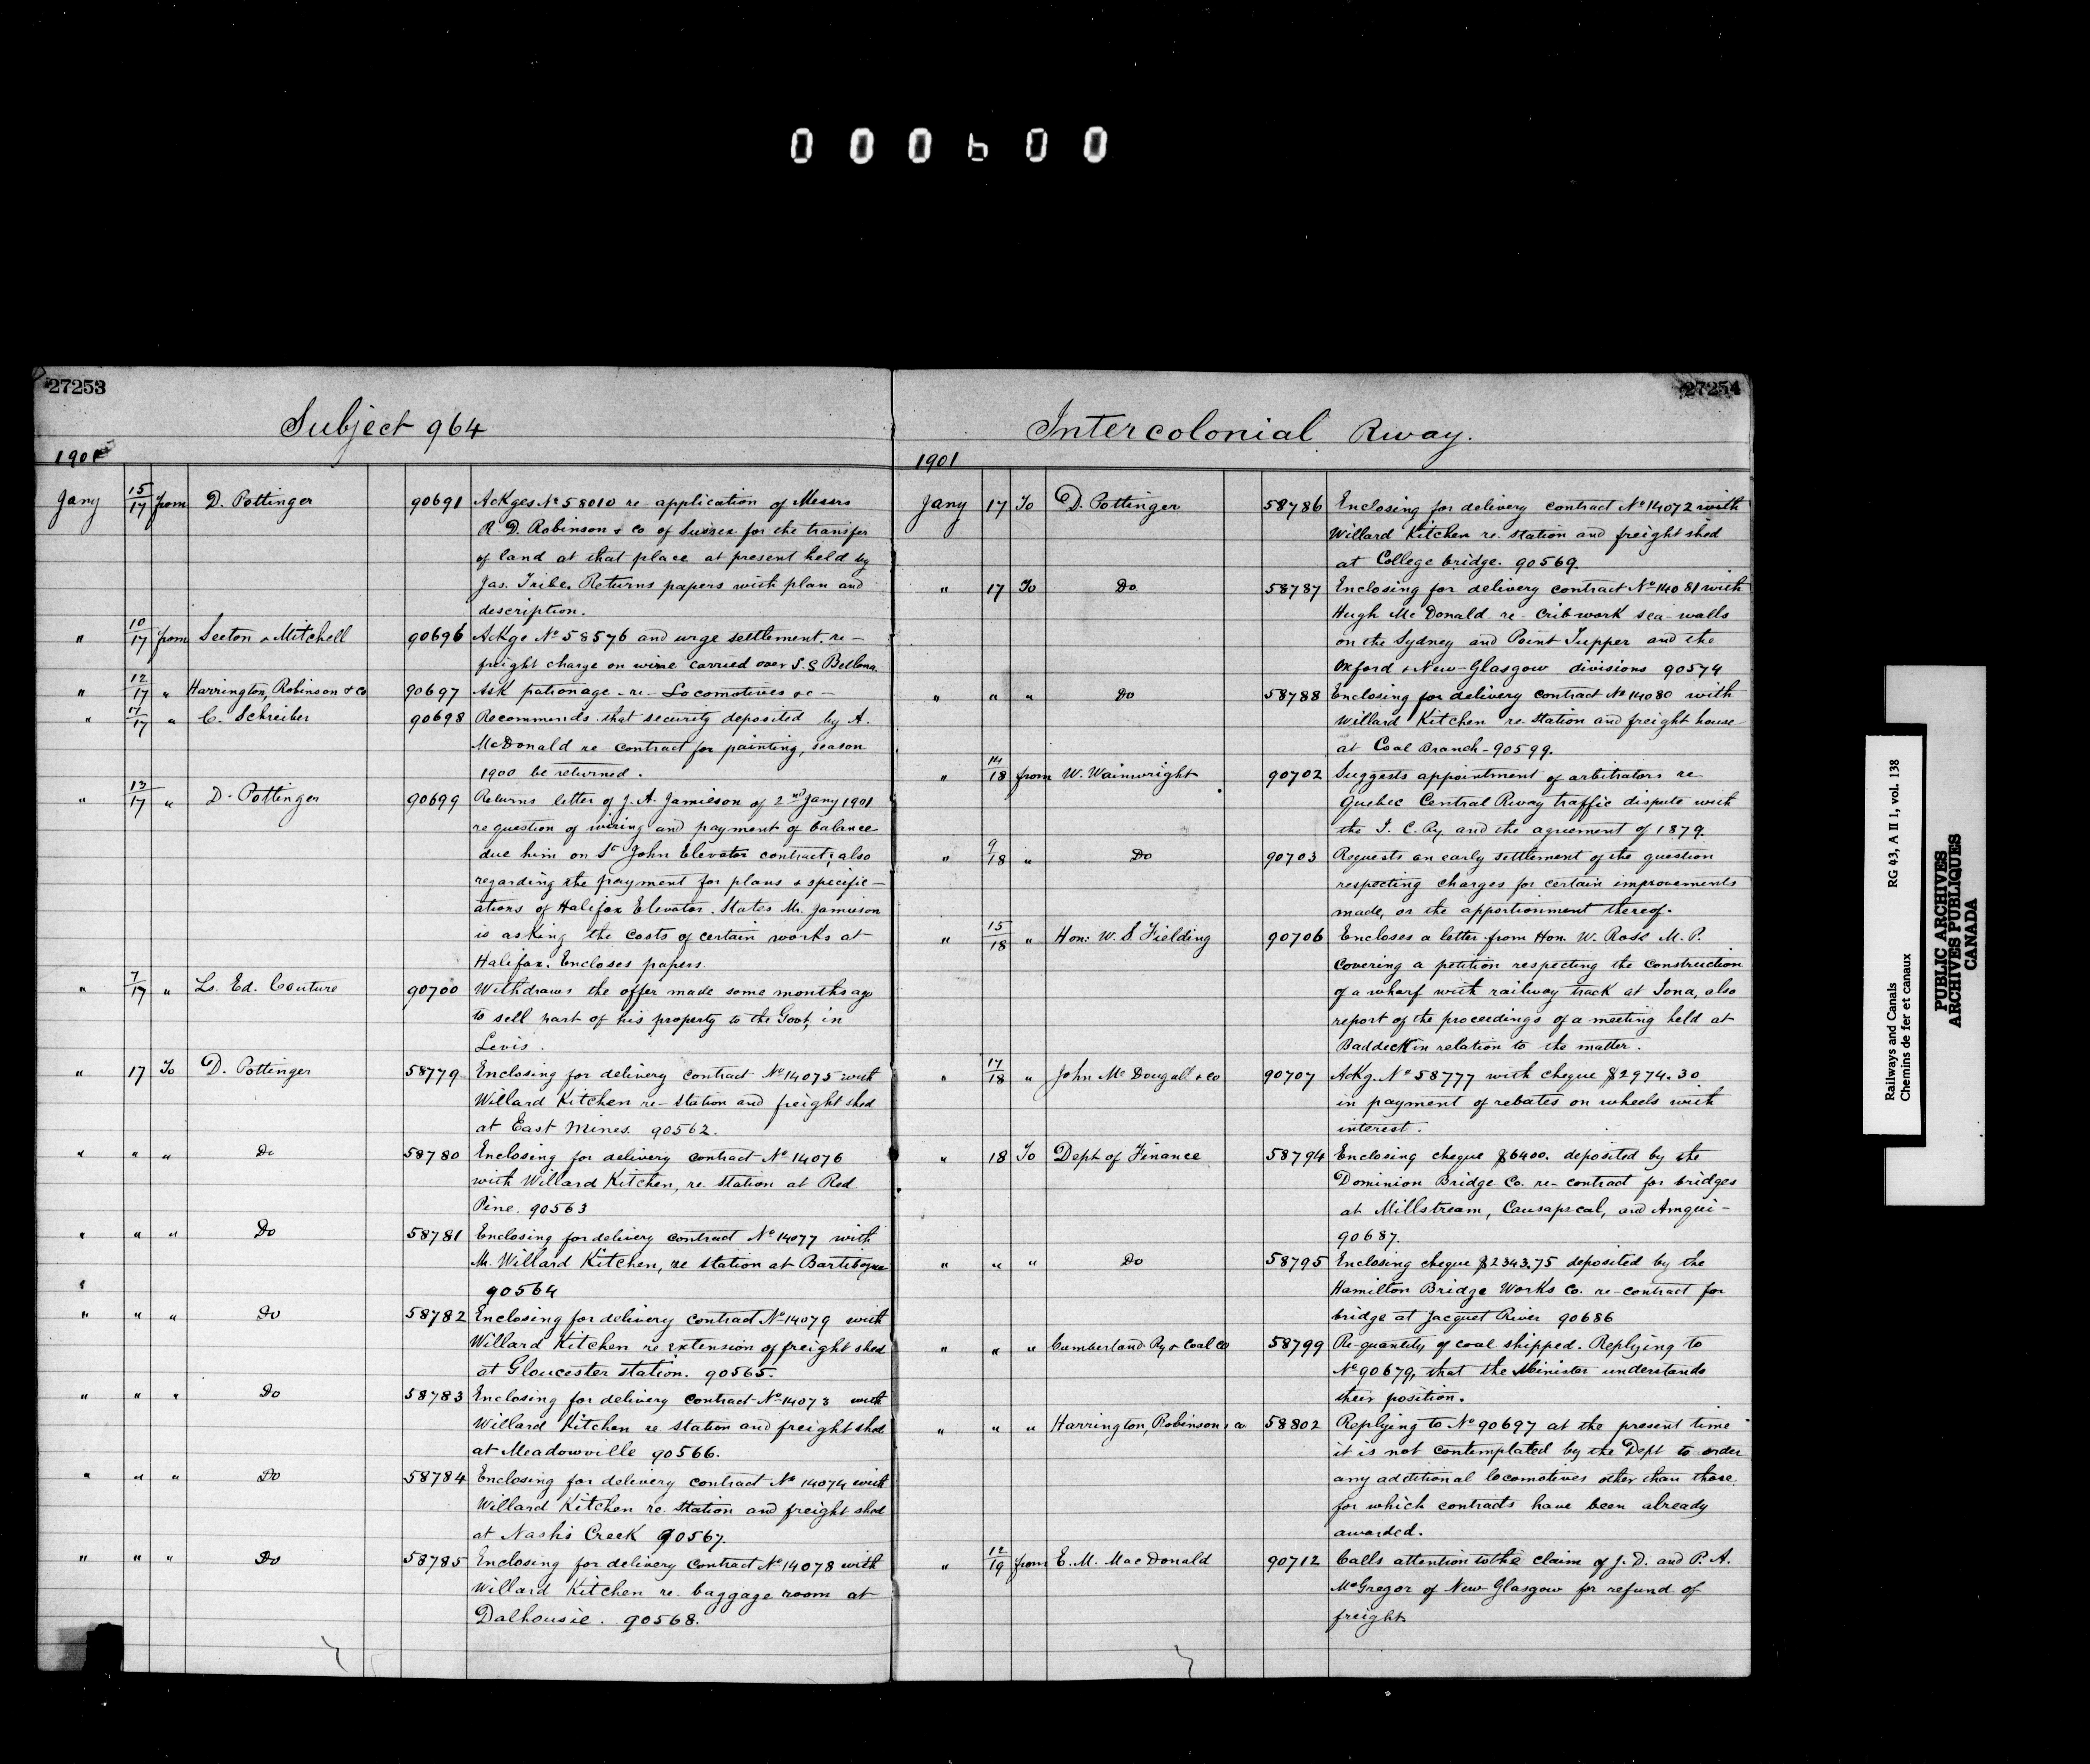 000600
27253
Subject 964
1901
Jany 15/17 from D. Pottinger 90691 Ackges No 58010 re application of Messrs
R. D. Robinson & Co of Sussex for the transfer
of land at that place at present held by
Jas. Tribe. Returns papers with plan and
description.
" 10/17 from Seeton & Mitchell 90696 Ackge No 58576 and urge settlement re-
freight charge on wire carried over S.S Bellona
" 12/17 " Harrington, Robinson & Co 90697 Ask patronage -re- Locomotives &c-
" 17/17 " C. Schreiber 90698 Recommends that security deposited by A.
McDonald re contract for painting, season
1900 be returned.
" 13/17 " D. Pottinger 90699 Returns letter of J. A. Jamieson of 2nd Jany 1901
re question of wiring and payment of balance
due him on St John Elevator contract; also
regarding the payment for plans & specific-
ations of Halifax Elevator. States Mr. Jamieson
is asking the costs of certain works at
Halifax. Encloses papers.
" 7/17 " Ls. Ed. Couture 90700 Withdraws the offer made some months ago
to sell part of his property to the Govt, in
Levis.
" 17 To D. Pottinger 58779 Enclosing for delivery contract No 14075 with
Willard Kitchen re- station and freight shed
at East Mines. 90562.
" " " Do 58780 Enclosing for delivery contract No 14076
with Willard Kitchen, re station at Red
Pine. 90563
" " " Do 58781 Enclosing for delivery contract No 14077 with
Mr. Willard Kitchen, re station at Bartibogue
" 90564
" " " Do 58782 Enclosing for delivery contract No 14079 with
Willard Kitchen re extension of freight shed
at Gloucester station. 90565.
" " " Do 58783 Enclosing for delivery contract No 14073 with
Willard Kitchen re station and freight shed
at Meadowville 90566.
" " " Do 58784 Enclosing for delivery contract No 14074 with
Willard Kitchen re. Station and freight shed
at Nash's Creek 90567.
" " " Do 58785 Enclosing for delivery contract No 14078 with
Willard Kitchen re baggage room at
Dalhousie. 90568.
27254
Intercolonial Rway.
1901
Jany 17 To D. Pottinger 58786 Enclosing for delivery contract No 14072 with
Willard Kitchen re. station and freight shed
at College bridge. 90569.
" 17 To Do 58787 Enclosing for delivery contract No 14081 with
Hugh McDonald -re- Cribwork sea walls
on the Sydney and Point Tupper and the
Oxford & New-Glasgow divisions 90574
" " " Do 58788 Enclosing for delivery contract No 14080 with
Willard Kitchen re station and freight house
at Coal Branch - 90599.
" 14/18 from W. Wainwright 90702 Suggests appointment of arbitrators re
Quebec Central Rway traffic dispute with
the I. C. Ry and the agreement of 1879.
" 9/18 " Do 90703 Requests an early settlement of the question
respecting charges for certain improvements
made, or the apportionment thereof.
" 15/18 " Hon: W. S. Fielding 90706 Encloses a letter from Hon. W. Ross M. P.
covering a petition respecting the construction
of a wharf with railway track at Iona, also
report of the proceedings of a meeting held at
Baddeck in relation to the matter.
" 17/18 " John McDougall & Co 90707 Ackg. No 58777 with cheque $2974.30
in payment of rebates on wheels with
interest.
" 18 To Dept of Finance 58794 Enclosing cheque $6400. deposited by the
Dominion Bridge Co. re- contract for bridges
at Millstream, Causapscal, and Amqui-
90687.
" " " Do 58795 Enclosing cheque $2343.75 deposited by the
Hamilton Bridge Works Co. re- contract for
bridge at Jacquet River 90686
" " " Cumberland Ry & Coal Co 58799 Re-quantity of coal shipped. Replying to
No 90679, that the Minister understands
their position.
" " " Harrington, Robinson & Co 58802 Replying to No 90697 at the present time
it is not contemplated by the Dept to order
any additional locomotives other than those
for which contracts have been already
awarded.
" 12/19 from E. M. MacDonald 90712 Calls attention to the claim of J. D. and P. A.
McGregor of New Glasgow for refund of
freight
Railways and Canals RG 43, A II 1, vol. 138
Chemins de fer et canaux
PUBLIC ARCHIVES
ARCHIVES PUBLIQUES
CANADA